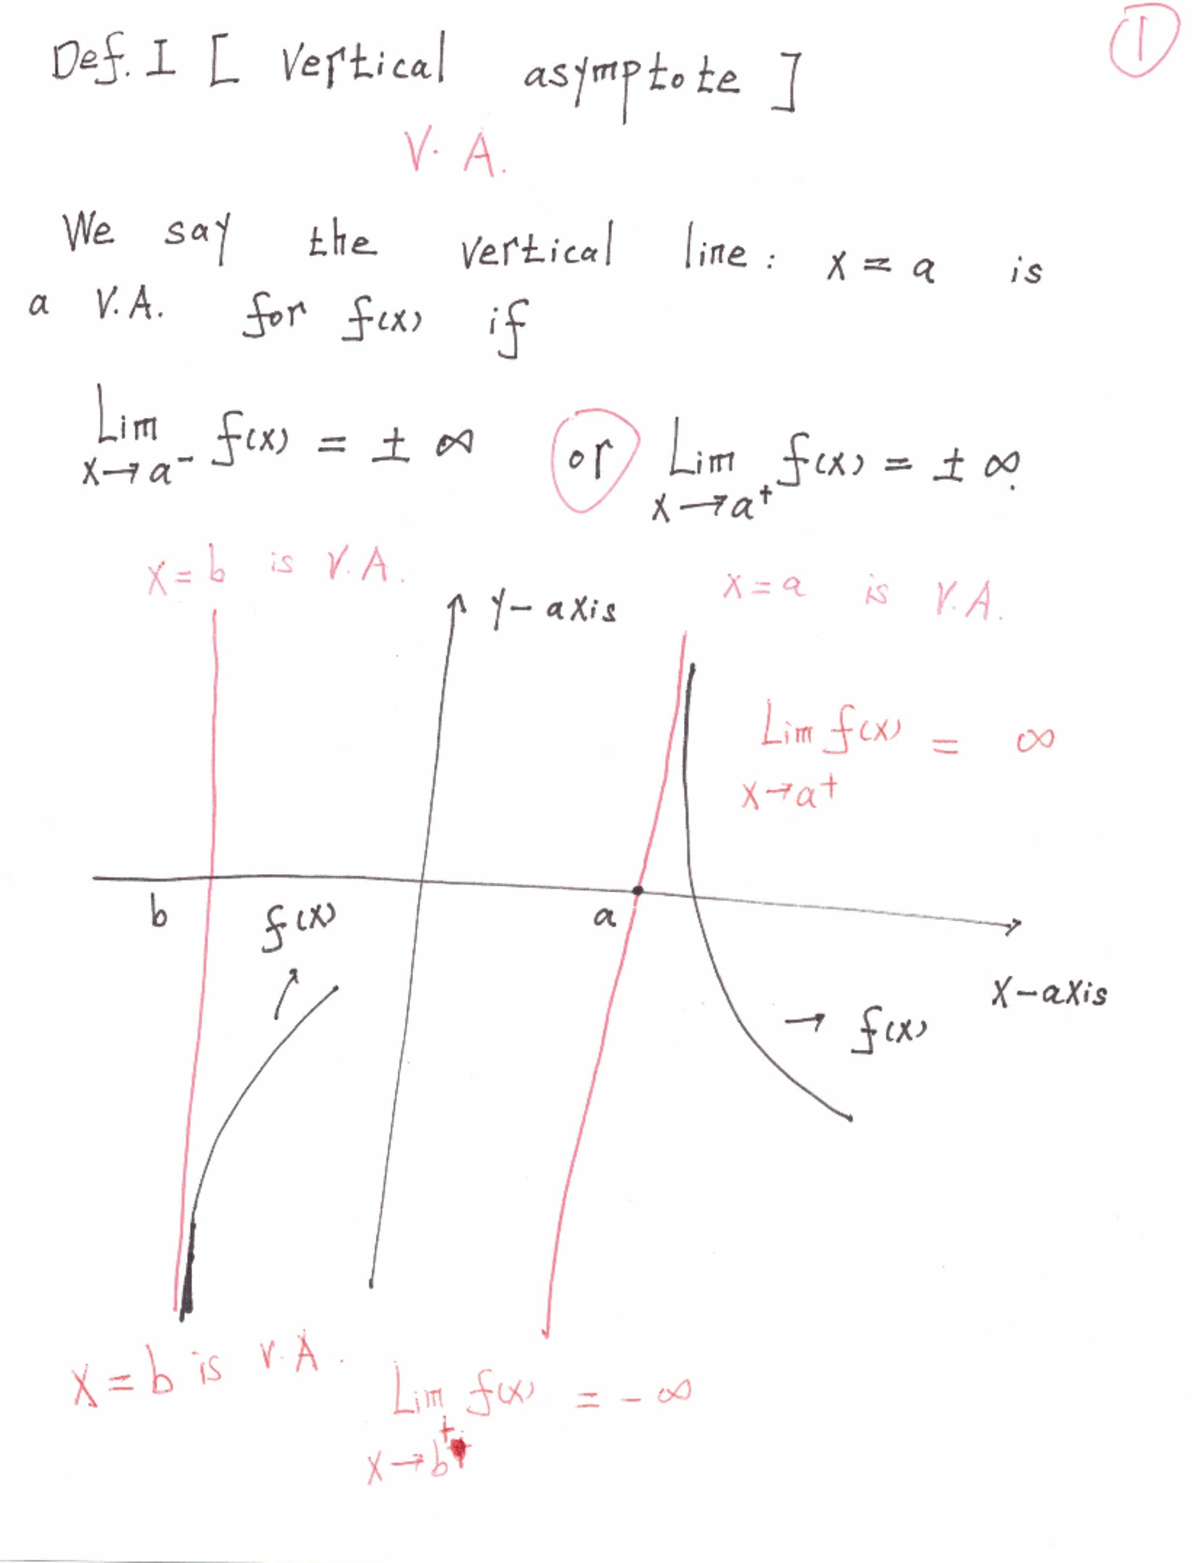 ①
Def. I [ Vertical asymptote ]
V. A.
We say the vertical line: x = a is
a V.A. for f(x) if
Lim f(x) = ± ∞ or Lim f(x) = ± ∞.
x → a⁻ x → a⁺
x = b is V.A.
x = a is V.A.
y-axis
Lim f(x) = ∞
x → a⁺
b
f(x)
a
x-axis
→ f(x)
x = b is V.A.
Lim f(x) = - ∞
x → b⁺